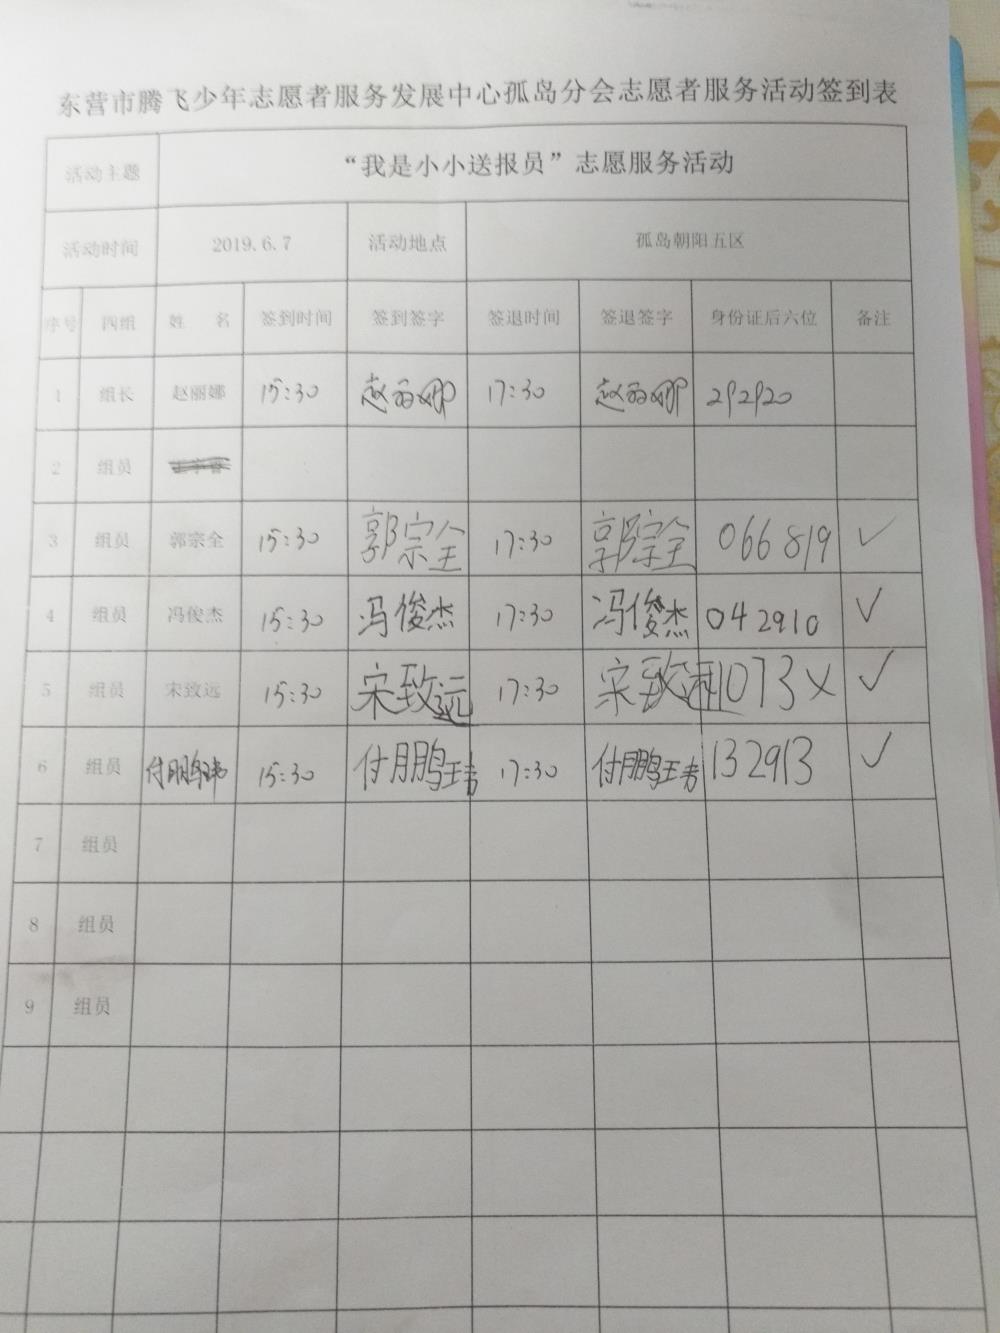 东营市腾飞少年志愿者服务发展中心孤岛分会志愿者服务活动签到表
活动主题 “我是小小送报员”志愿服务活动
活动时间 2019.6.7 活动地点 孤岛朝阳五区
序号 四组 姓 名 签到时间 签到签字 签退时间 签退签字 身份证后六位 备注
1 组长 赵丽娜 15:30 赵丽娜 17:30 赵丽娜 292920
2 组员
3 组员 郭宗全 15:30 郭宗全 17:30 郭宗全 066819 ✓
4 组员 冯俊杰 15:30 冯俊杰 17:30 冯俊杰 042910 ✓
5 组员 宋致远 15:30 宋致远 17:30 宋致远 073X ✓
6 组员 付鹏玮 15:30 付鹏玮 17:30 付鹏玮 132913 ✓
7 组员
8 组员
9 组员